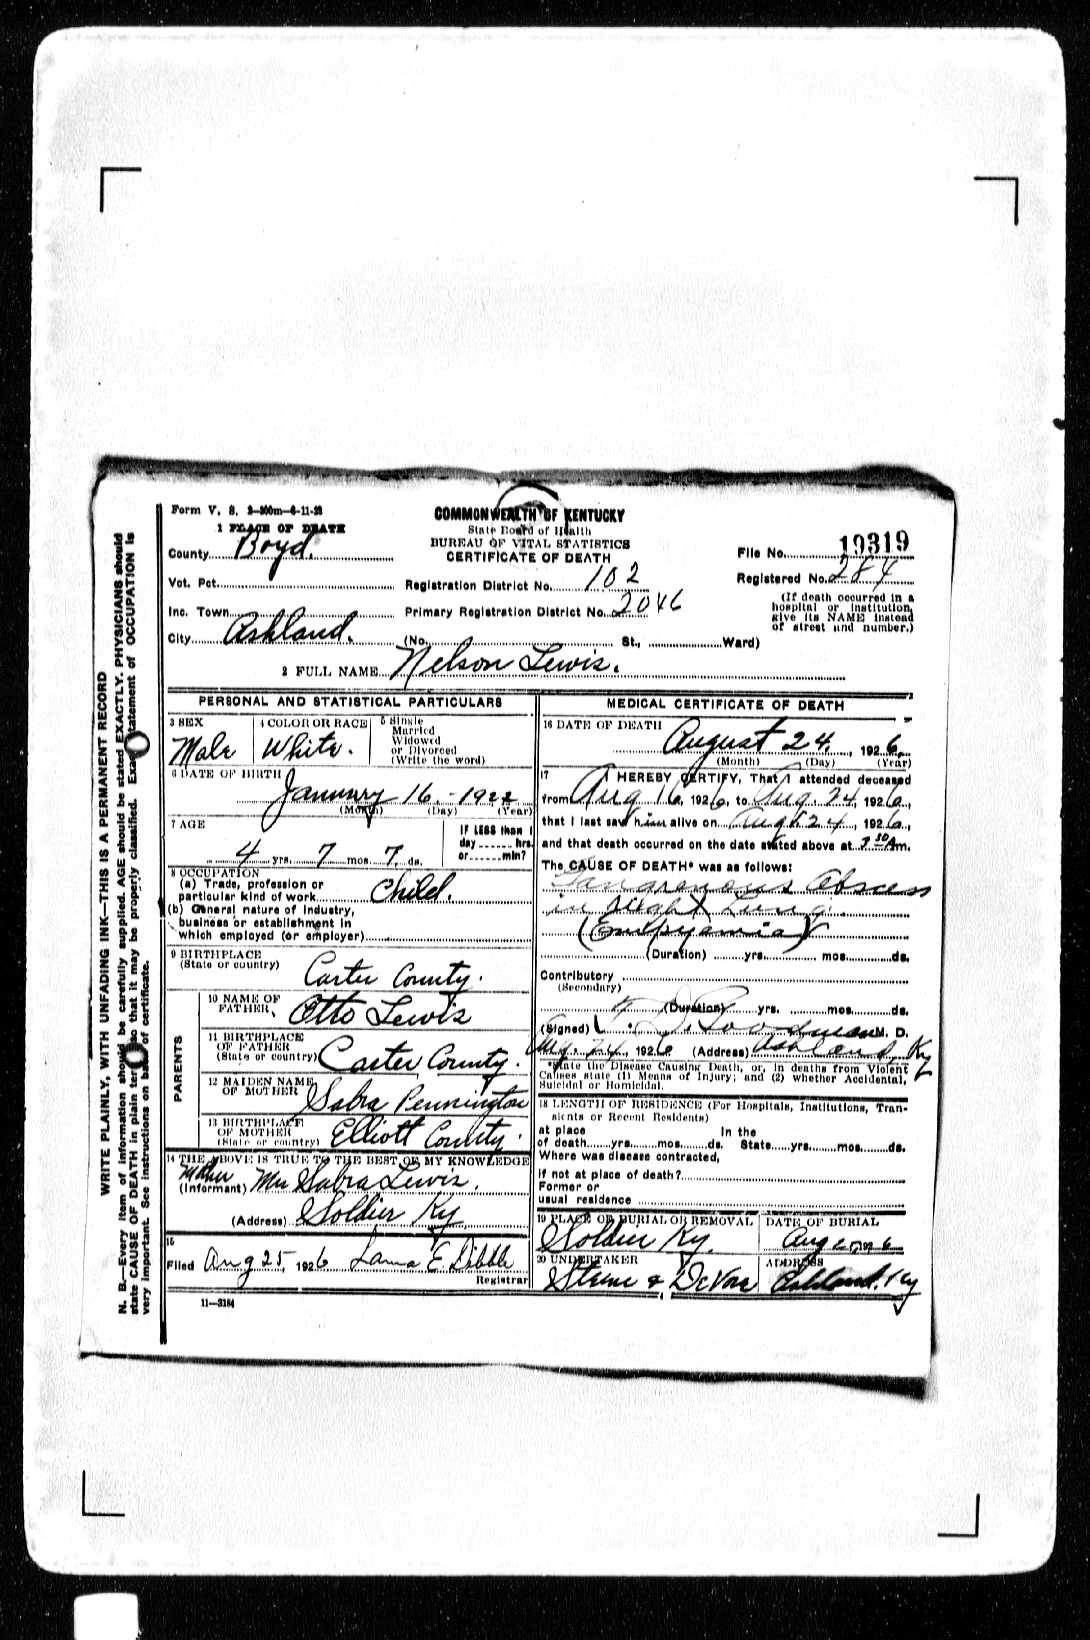 Form V. S. 2-200m-6-11-23
COMMONWEALTH OF KENTUCKY
State Board of Health
BUREAU OF VITAL STATISTICS
CERTIFICATE OF DEATH
1 PLACE OF DEATH
County Boyd.
Vot. Pct.
Inc. Town
City Ashland.
Registration District No. 102
Primary Registration District No. 2046
(No. St., Ward)
File No. 19319
Registered No. 284
(If death occurred in a
hospital or institution,
give its NAME instead
of street and number.)
2 FULL NAME Nelson Lewis.
PERSONAL AND STATISTICAL PARTICULARS
3 SEX
Male
4 COLOR OR RACE
White.
5 Single
Married
Widowed
or Divorced
(Write the word)
6 DATE OF BIRTH
January 16 - 1922
(Month) (Day) (Year)
7 AGE
4 yrs. 7 mos. 7 ds.
IF LESS than 1
day hrs.
or min?
8 OCCUPATION
(a) Trade, profession or
particular kind of work Child.
(b) General nature of industry,
business or establishment in
which employed (or employer)
9 BIRTHPLACE
(State or country)
Carter County.
PARENTS
10 NAME OF
FATHER, Otto Lewis
11 BIRTHPLACE
OF FATHER
(State or country) Carter County.
12 MAIDEN NAME
OF MOTHER Sabra Pennington
13 BIRTHPLACE
OF MOTHER
(State or country) Elliott County.
14 THE ABOVE IS TRUE TO THE BEST OF MY KNOWLEDGE
Mother
(Informant) Mrs Sabra Lewis.
(Address) Soldier Ky
15
Filed Aug 25, 1926 E Dibble
Registrar
11—3184
MEDICAL CERTIFICATE OF DEATH
16 DATE OF DEATH
August 24, 1926
(Month) (Day) (Year)
17 I HEREBY CERTIFY, That I attended deceased
from Aug 16, 1926, to Aug. 24, 1926,
that I last saw him alive on Aug. 24, 1926,
and that death occurred on the date stated above at 3 30 Am.
The CAUSE OF DEATH* was as follows:
Gangrenous Abscess
in Right Lung.
(Empyemia)
(Duration) yrs. mos. ds.
Contributory
(Secondary)
(Duration) yrs. mos. ds.
(Signed) Goodman M. D.
Aug. 24, 1926 (Address) Ashland, Ky
*State the Disease Causing Death, or, in deaths from Violent
Causes state (1) Means of Injury; and (2) whether Accidental,
Suicidal or Homicidal.
18 LENGTH OF RESIDENCE (For Hospitals, Institutions, Tran-
sients or Recent Residents)
at place In the
of death yrs. mos. ds. State yrs. mos. ds.
Where was disease contracted,
if not at place of death?
Former or
usual residence
19 PLACE OF BURIAL OR REMOVAL
Soldier Ky.
DATE OF BURIAL
Aug 25, 1926
20 UNDERTAKER
Steene & DeVore
ADDRESS
Ashland. Ky
WRITE PLAINLY, WITH UNFADING INK—THIS IS A PERMANENT RECORD
N. B.—Every item of information should be carefully supplied. AGE should be stated EXACTLY. PHYSICIANS should
state CAUSE OF DEATH in plain terms so that it may be properly classified. Exact statement of OCCUPATION is
very important. See instructions on back of certificate.